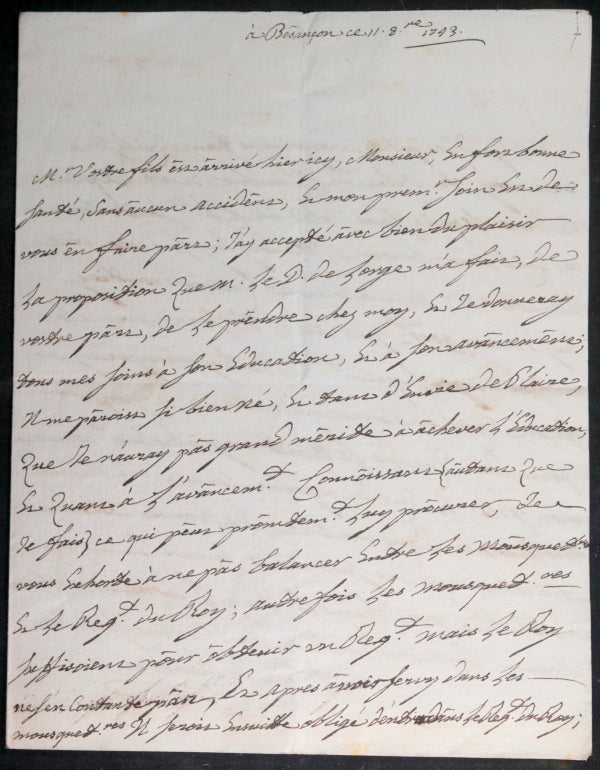 à Besançon ce 11. 8.re 1743.
Mr. Vostre fils est arrivé hier icy, Monsieur, En fort bonne
santé, sans aucun accident, Et mon premr. soin Est de
vous En faire part; J'ay accepté avec bien du plaisir
La proposition Que M. Le D. de Lorge m'a fait, de
vostre part, de Le prendre chez moy, Et Je donneray
tous mes soins à son Education, Et à son avancement;
Il me paroist si bien né, Et tant d'Envie de Plaire,
Que Je n'auray pas grand mérite à achever L'Education,
Et Quant à L'avancemt. Connoissant (autant Que
Je fais) ce qui peut promtemt. Luy procurer, Je
vous Exhorte à ne pas balancer Entre Les Mousquetres
Et Le Regt. du Roy; autrefois Les mousquetres
suffisoient pour obtenir un Regt. mais Le Roy
ne s'en Contente pas, Et apres avoir servy dans Les
mousquetres Il seroit Ensuitte obligé d'entrer dans Le Regt. du Roy;